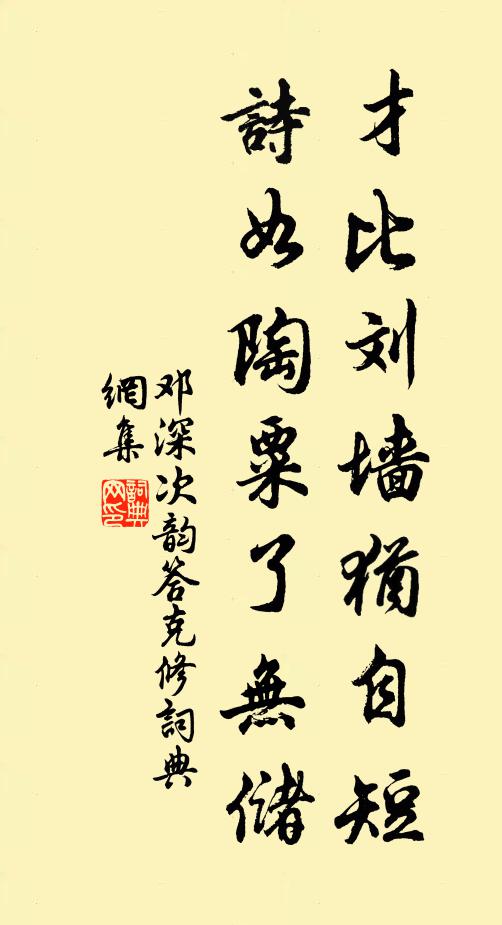 才比刘墙犹自短
詩如陶粟了無儲
邓深次韵答克修詞典
網集
詞典網印